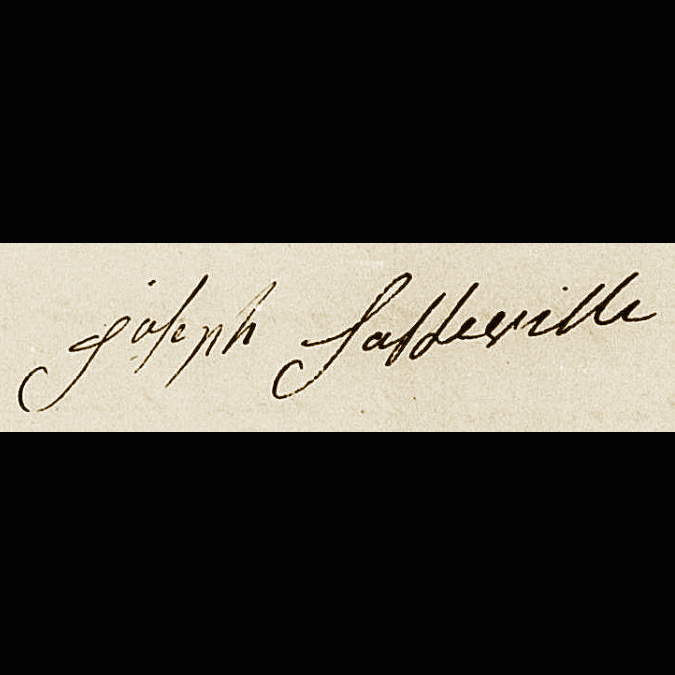 joseph Sasseville